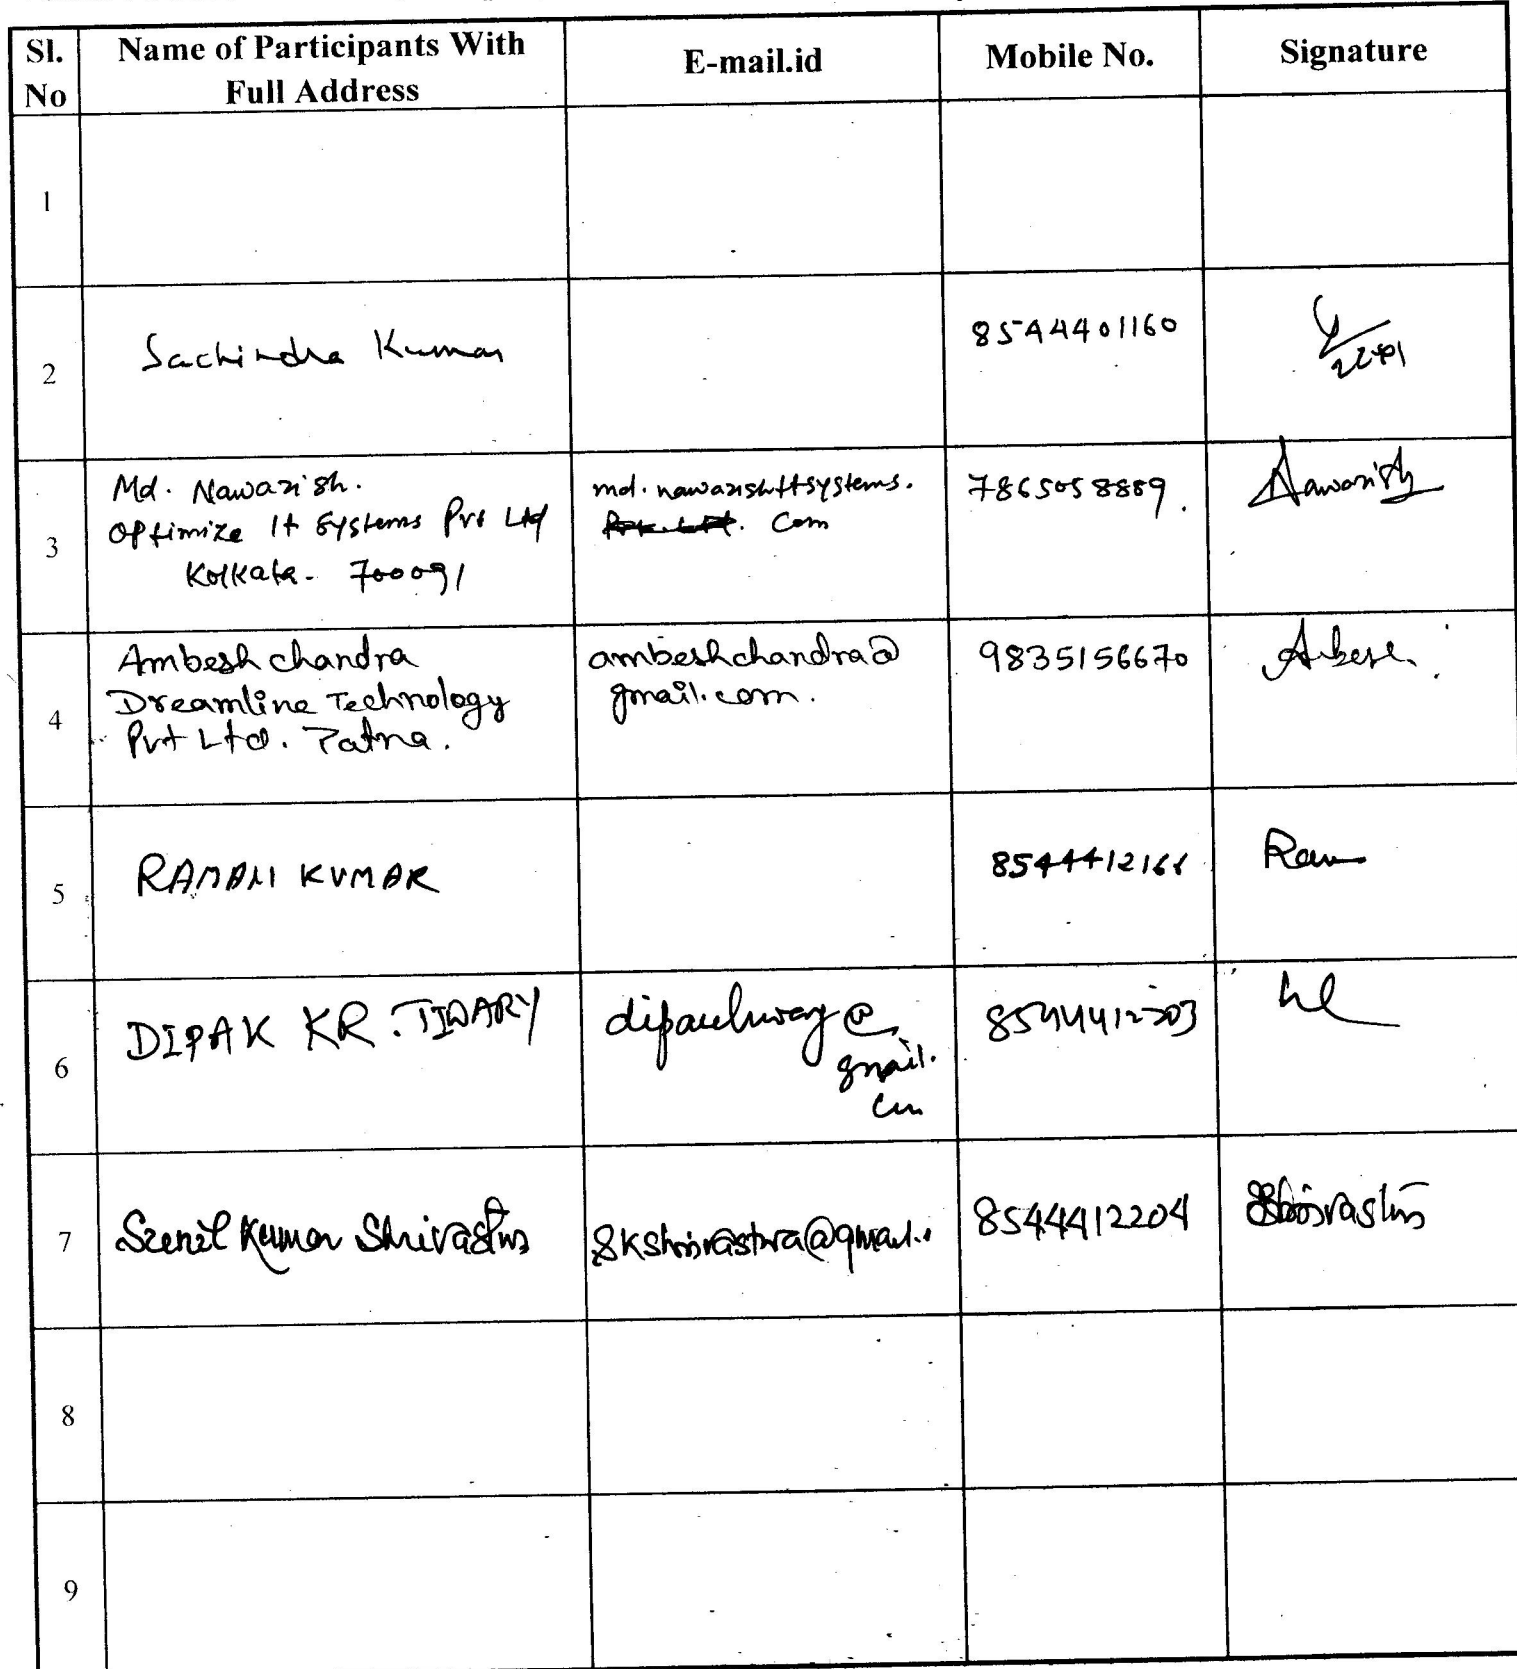 Sl. No
Name of Participants With
Full Address
E-mail.id
Mobile No.
Signature
1
2
Sachindra Kumar
8544401160
3
Md. Nawazish.
Optimize It Systems Pvt Ltd
Kolkata- 700091
md.nawazishttsystems.
Com
7865058889.
Nawazish
4
Ambesh chandra
Dreamline Technology
Pvt Ltd. Patna.
ambeshchandra@
gmail.com.
9835156670
5
RAMAN KUMAR
8544412166
6
DIPAK KR. TIWARY
@
gmail.
com
7
Sunil Kumar Shrivastva
8544412204
8
9